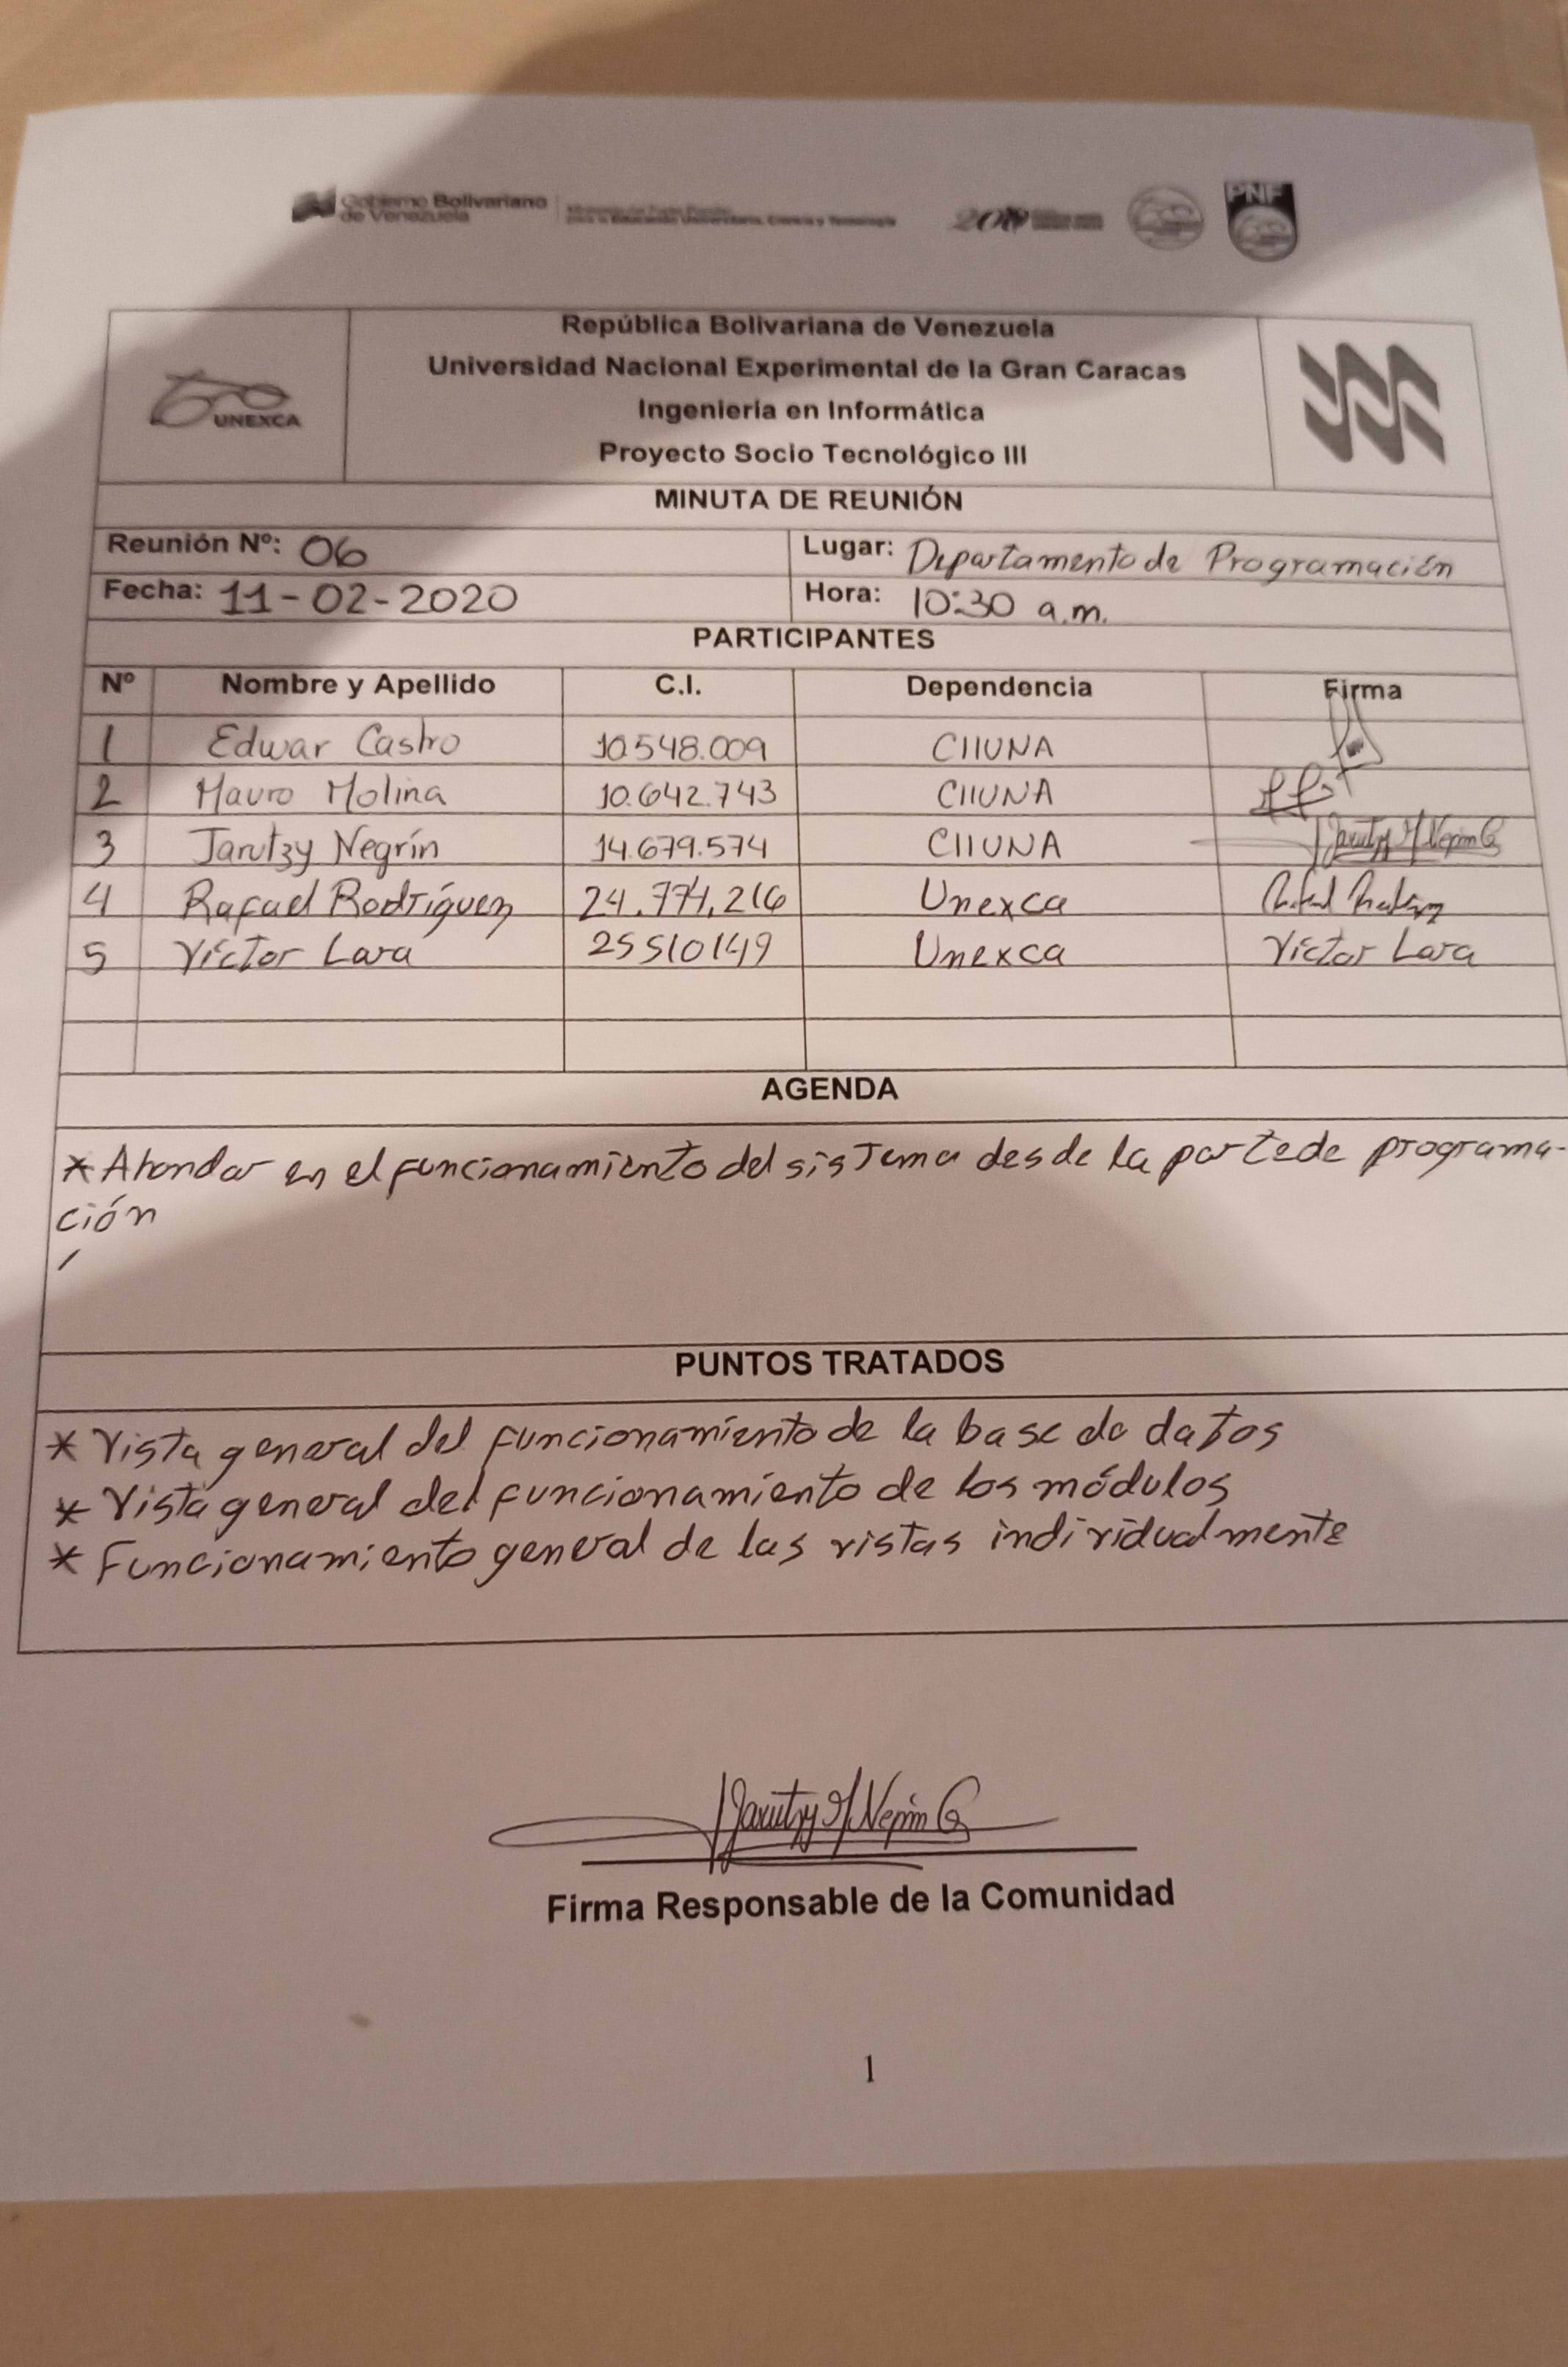 Gobierno Bolivariano
de Venezuela
para la Educación Universitaria, Ciencia y Tecnología
PNF
República Bolivariana de Venezuela
Universidad Nacional Experimental de la Gran Caracas
Ingeniería en Informática
Proyecto Socio Tecnológico III
UNEXCA
MINUTA DE REUNIÓN
Reunión Nº: 06 Lugar: Departamento de Programación
Fecha: 11-02-2020 Hora: 10:30 a.m.
PARTICIPANTES
Nº Nombre y Apellido C.I. Dependencia Firma
1 Edwar Castro 10.548.009 CIIUNA
2 Mauro Molina 10.642.743 CIIUNA
3 Jarutzy Negrín 14.679.574 CIIUNA
4 Rafael Rodríguez 24.774.216 Unexca
5 Víctor Lara 25510149 Unexca Víctor Lara
AGENDA
* Ahondar en el funcionamiento del sistema desde la parte de programa-
ción
PUNTOS TRATADOS
* Vista general del funcionamiento de la base de datos
* Vista general del funcionamiento de los módulos
* Funcionamiento general de las vistas individualmente
Firma Responsable de la Comunidad
1